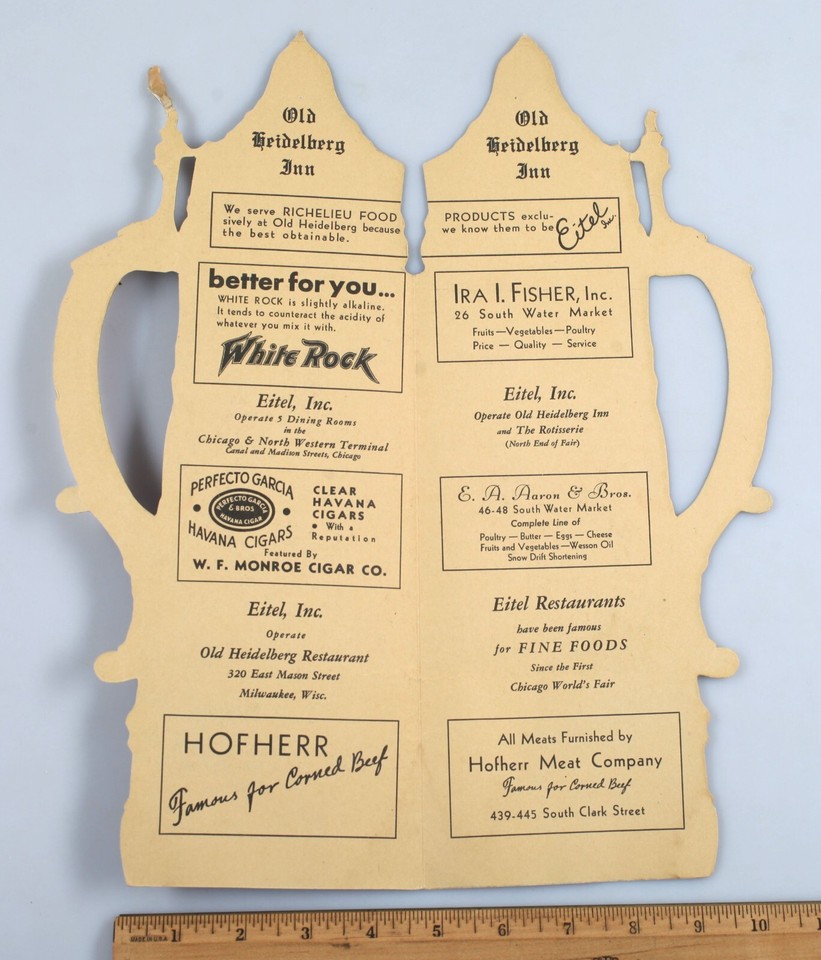 Old
Heidelberg
Inn
We serve RICHELIEU FOOD
sively at Old Heidelberg because
the best obtainable.
better for you...
WHITE ROCK is slightly alkaline.
It tends to counteract the acidity of
whatever you mix it with.
White Rock
Eitel, Inc.
Operate 5 Dining Rooms
in the
Chicago & North Western Terminal
Canal and Madison Streets, Chicago
PERFECTO GARCIA
PERFECTO GARCIA
& BROS
HAVANA CIGAR
HAVANA CIGARS
CLEAR
HAVANA
CIGARS
• With a
Reputation
Featured By
W. F. MONROE CIGAR CO.
Eitel, Inc.
Operate
Old Heidelberg Restaurant
320 East Mason Street
Milwaukee, Wisc.
HOFHERR
Famous for Corned Beef
Old
Heidelberg
Inn
PRODUCTS exclu-
we know them to be
Eitel Inc.
IRA I. FISHER, Inc.
26 South Water Market
Fruits—Vegetables—Poultry
Price — Quality — Service
Eitel, Inc.
Operate Old Heidelberg Inn
and The Rotisserie
(North End of Fair)
E. A. Aaron & Bros.
46-48 South Water Market
Complete Line of
Poultry — Butter — Eggs — Cheese
Fruits and Vegetables—Wesson Oil
Snow Drift Shortening
Eitel Restaurants
have been famous
for FINE FOODS
Since the First
Chicago World's Fair
All Meats Furnished by
Hofherr Meat Company
Famous for Corned Beef
439-445 South Clark Street
1 2 3 4 5 6 7 8 9 10 1